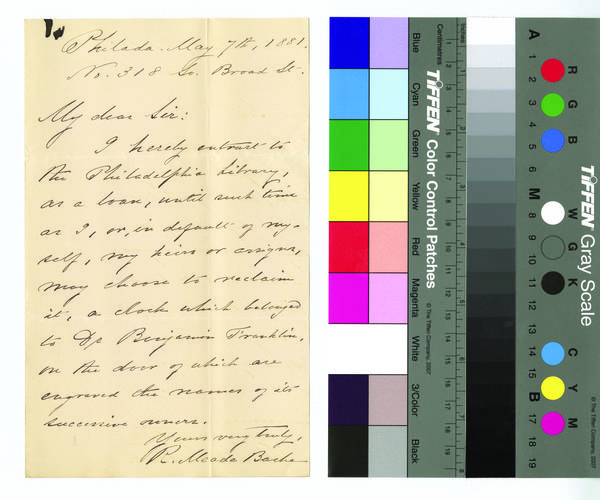 Philada. May 7th, 1881.
No. 318 So. Broad St.
My dear Sir:
I hereby entrust to
the Philadelphia Library,
as a loan, until such time
as I, or, in default of my-
self, my heirs or assigns,
may choose to reclaim
it, a clock which belonged
to Dr Benjamin Franklin,
on the door of which are
engraved the names of its
successive owners.
Yours very truly,
R. Meade Bache
Blue
Cyan
Green
Yellow
Red
Magenta
White
3/Color
Black
Centimetres
Inches
TIFFEN Color Control Patches
© The Tiffen Company, 2007
TIFFEN Gray Scale
© The Tiffen Company, 2007
A
1
2
3
4
5
6
M
8
9
10
11
12
13
14
15
B
17
18
19
R
G
B
W
G
K
C
Y
M